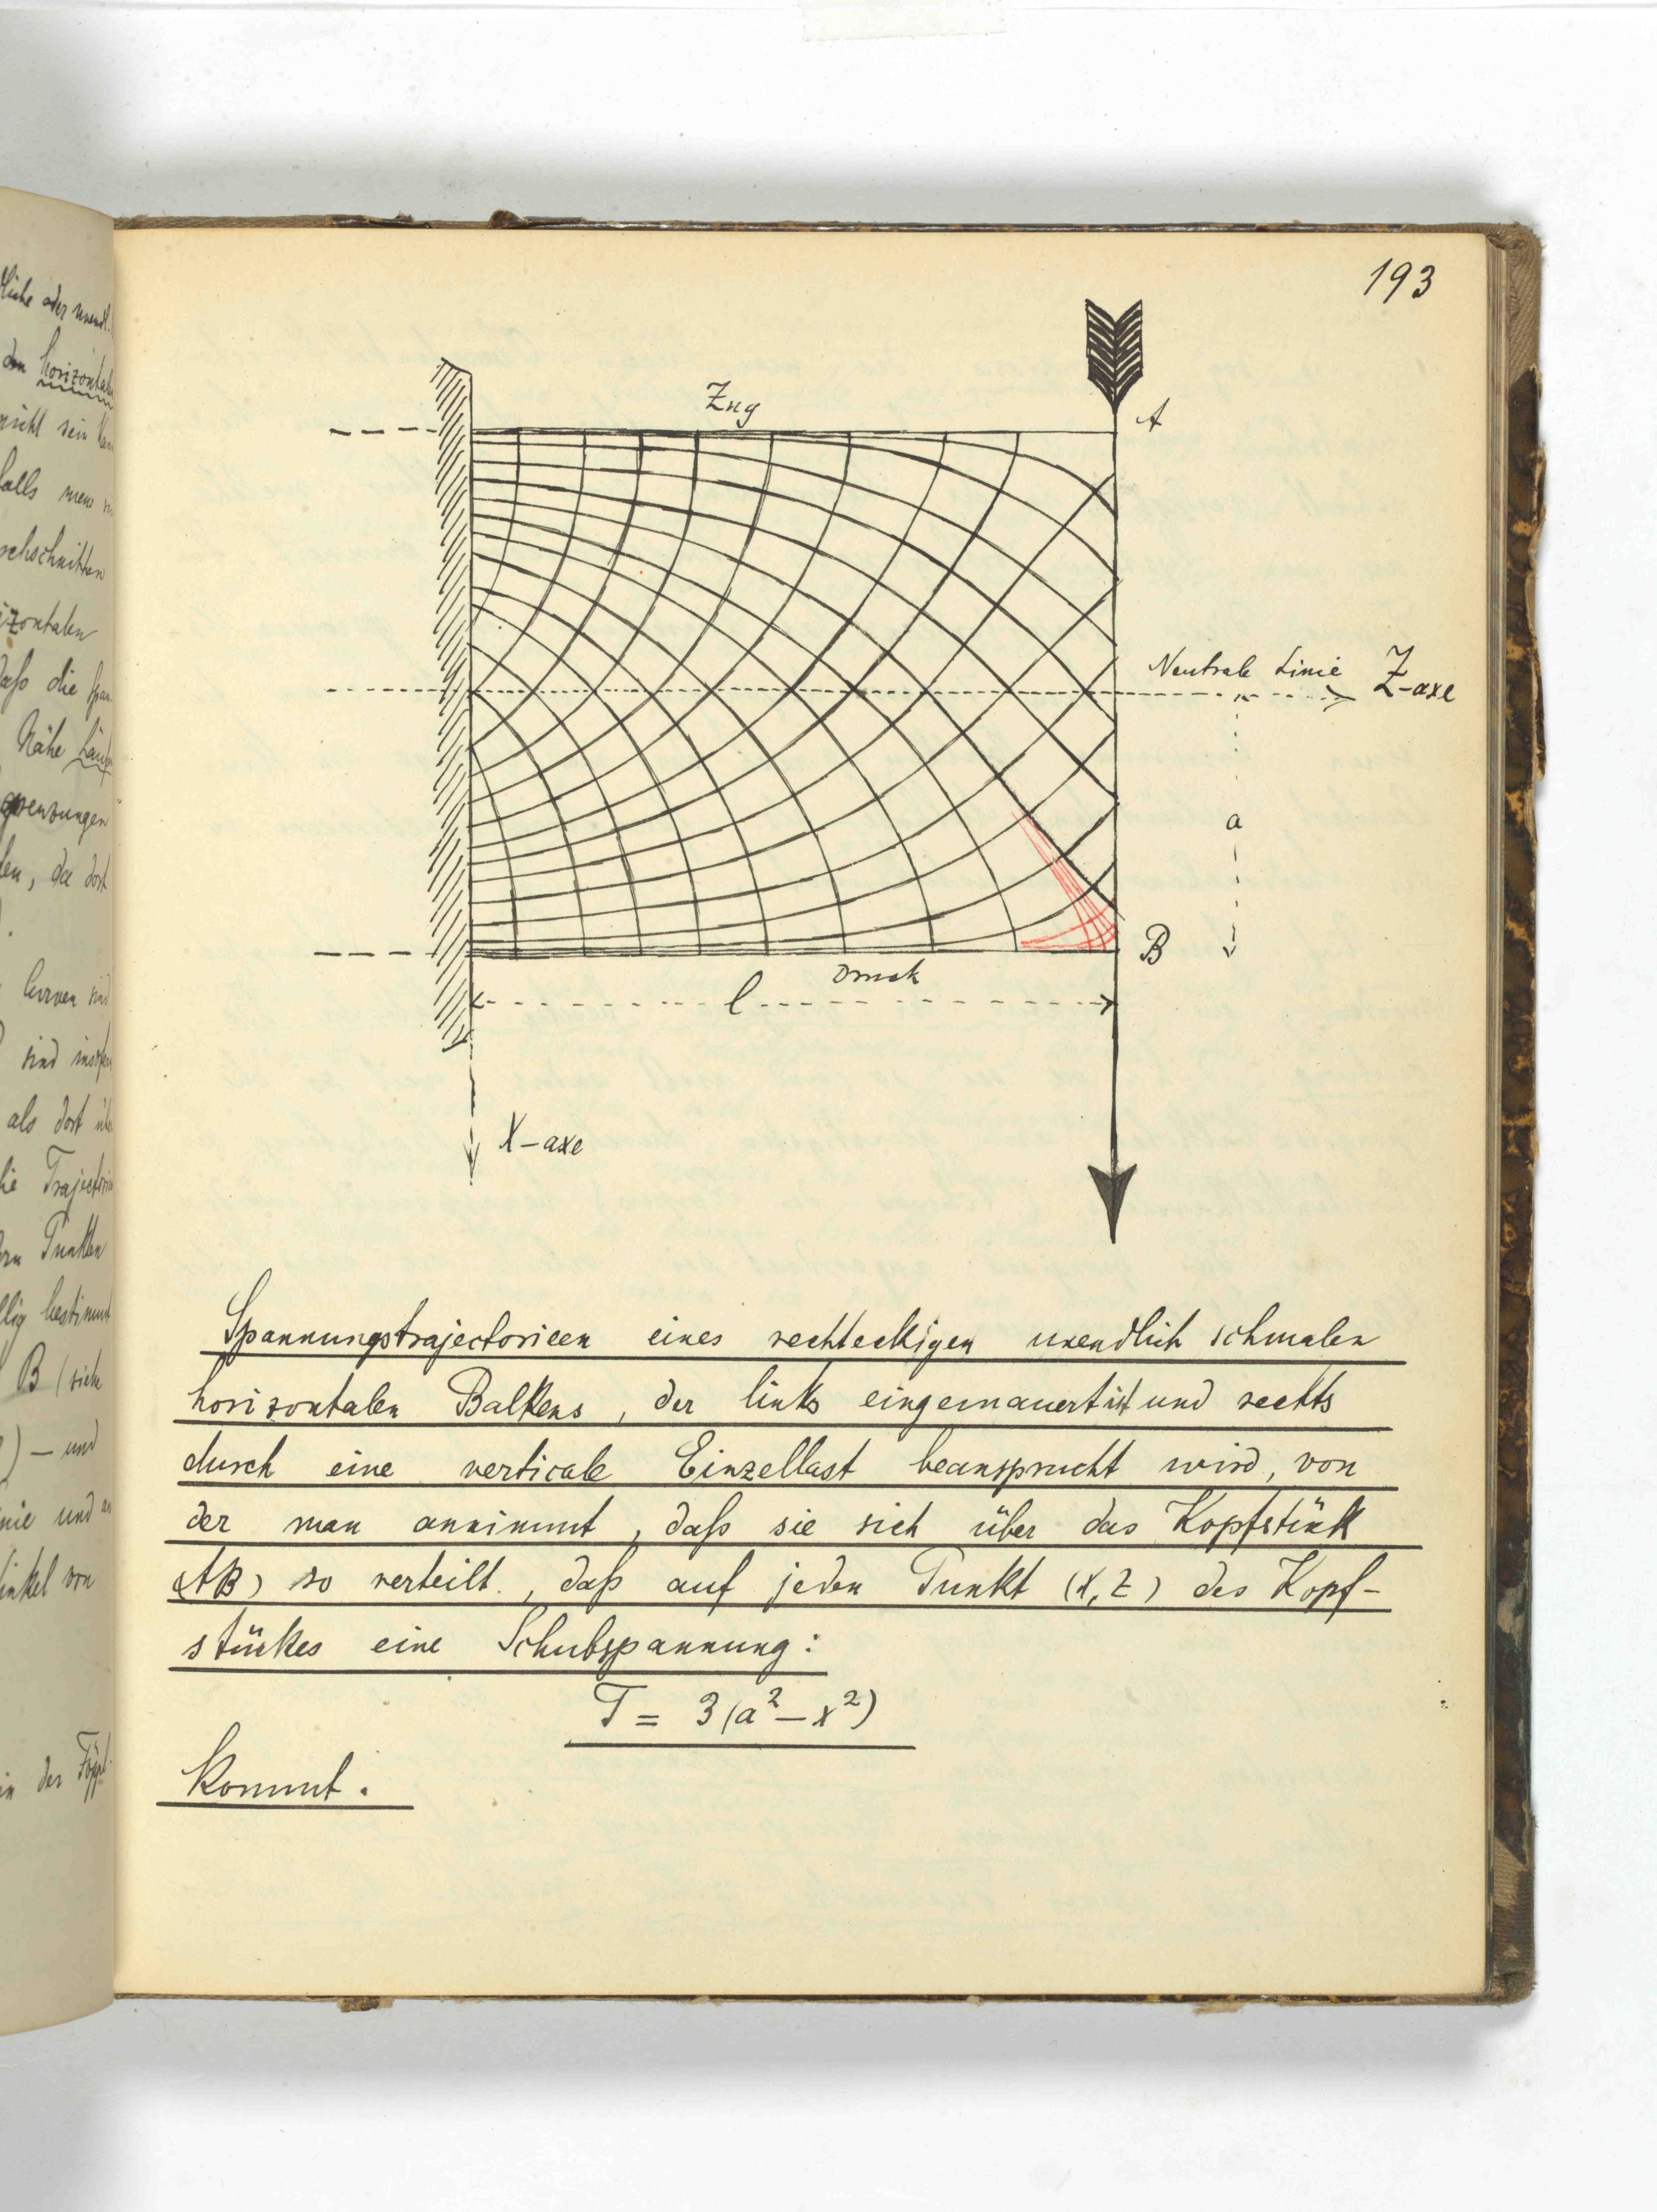 193
A
Zug
Neutrale Linie Z-axe
a
B
Druck
l
X-axe
Spannungstrajectorieen eines rechteckigen unendlich schmalen
horizontalen Balkens, der links eingemauert ist und rechts
durch eine verticale Einzellast beansprucht wird, von
der man annimmt, daß sie sich über das Kopfstück
(AB) so verteilt, daß auf jeden Punkt (X, Z) des Kopf-
stückes eine Schubspannung:
T = 3(a²-x²)
kommt.
liche oder unendl.
den horizontalen
nicht sein
falls man
schnitten
horizontalen
daß die Span
Nähe Läng
grenzungen
den, da dort
Curven sind
sind insofern
als dort
die Trajectorie
Punkten
llig bestimmt
B (siehe
) – und
nie und
inkel von
in der Föppl